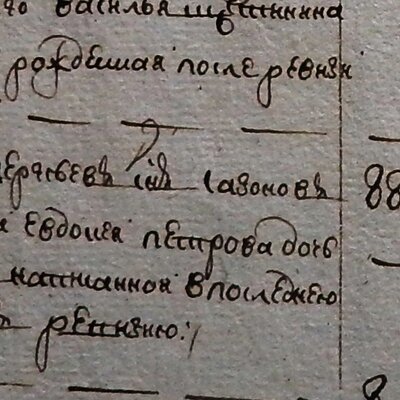 василья щетинина
рождешая после ревизи
ерасьевъ снъ сазоновъ 88
евдокея петрова дочь
написанной в последнею
ревизию: